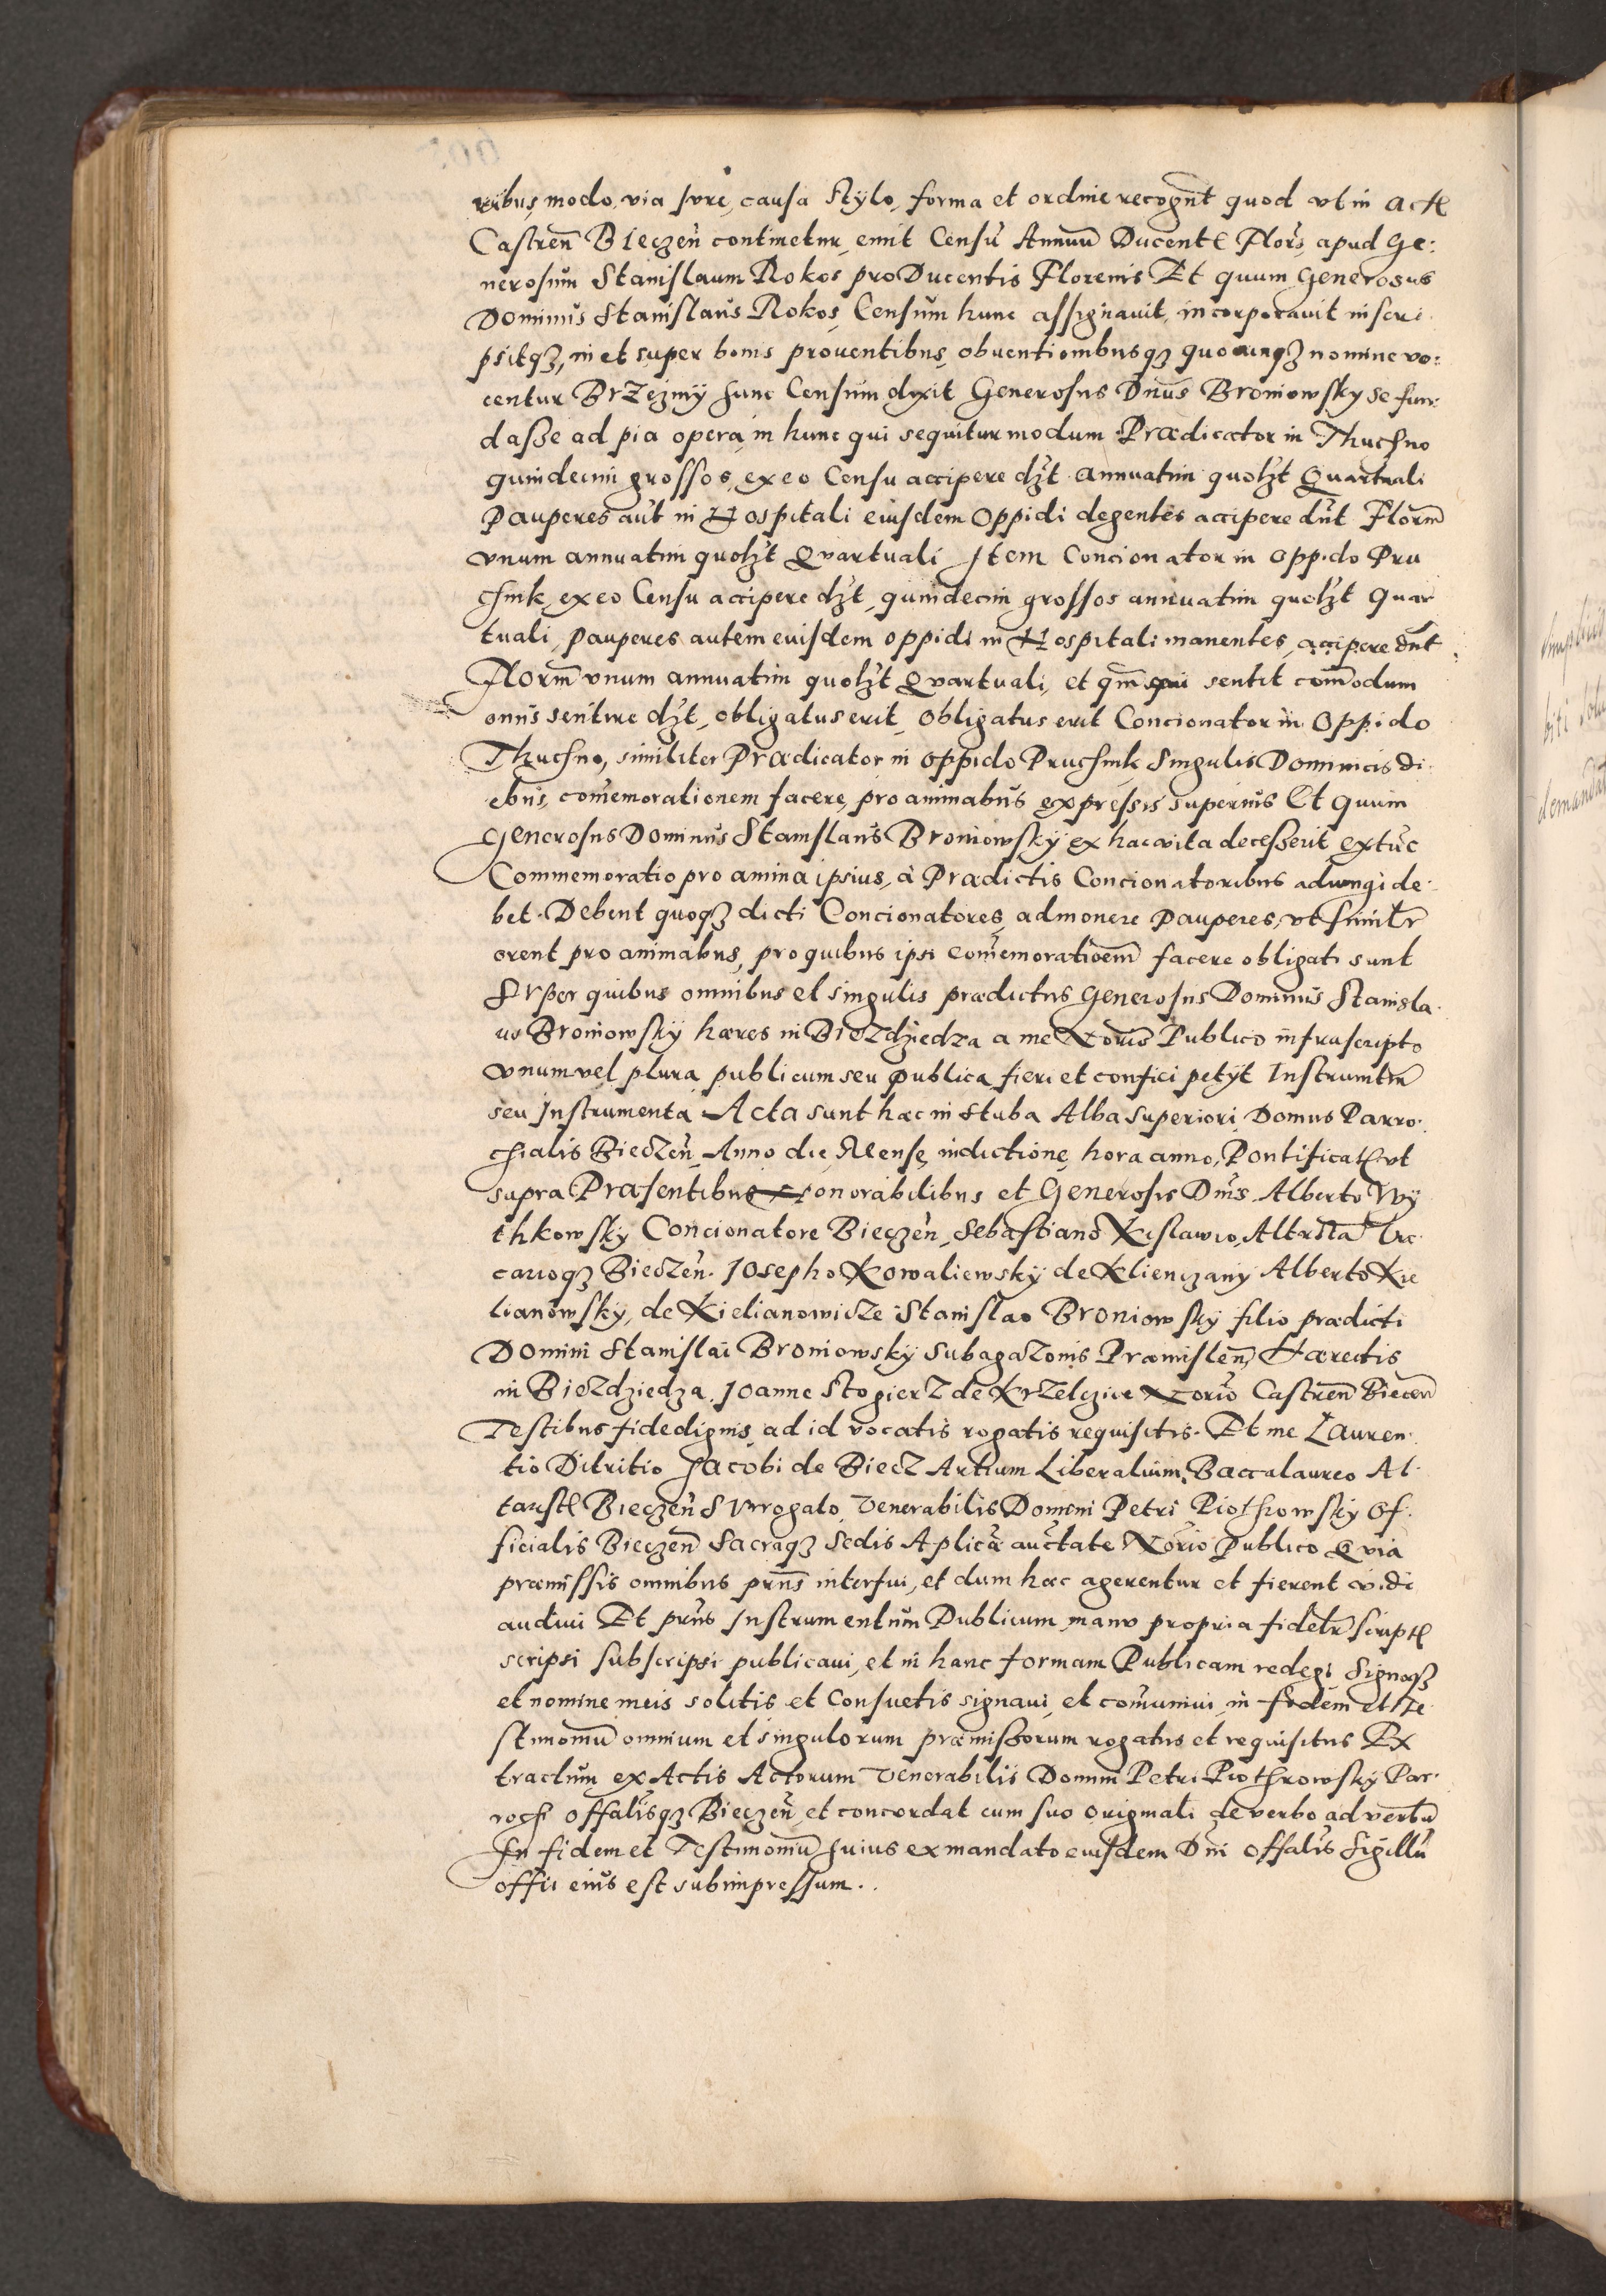 ribus, modo, via Jure, causa stylo, forma et ordine recognt quod ut in Actꝭ
Castren Bieczen continetur, emit Censu Annuu Ducentꝭ Flors, apud Ge:
nerosum Stanislaum Rokos pro Ducentis Florenis Et quum Generosus
Dominus Stanislaus Rokos, Censum hunc assignavit, incorporavit inscri
psitqꝫ, in et super bonis proventibus, obventionibusqꝫ quocunqꝫ nomine vo:
centur Brzeziny hunc Censum dixit Generosus Dnus Broniowsky se fun
dasse ad pia opera, in hunc qui sequitur modum. Prædicator in Thuchno
quindecim grossos, ex eo Censu accipere dꝫt annuatim quolꝫt Quartuali
Pauperes aut in Hospitali eiusdem Oppidi degentes accipere dnt Florm
vnum annuatim quolꝫt Quartuali Item Concionator in Oppido Pru
chnik, ex eo Censu accipere dꝫt, quindecim grossos annuatim quolꝫt Quar
tuali, Pauperes autem eiusdem oppidi in Hospitali manentes, accipere dnt
Florm vnum annuatim quolꝫt Quartuali, et qm qui sentit comodum
onus sentire dꝫt, obligatus erit, obligatus erit Concionator in Oppido
Thuchno, similiter Prædicator in Oppido Pruchnik Singulis Dominicis di
ebus, comemorationem facere, pro animabus expressis superius Et quum
Generosus Dominus Stanislaus Broniowsky ex hac vita decesserit, extuc
Commemoratio pro anima ipsius, à Prædictis Concionatoribus adiungi de
bet. Debent quoqꝫ dicti Concionatores, admonere Pauperes, vt similtr
orent pro animabus, pro quibus ipsi comemorationem facere obligati sunt
Super quibus omnibus et singulis prædictus Generosus Dominus Stanisla
us Broniowsky hæres in Biezdziedza a me Notorio Publico infrascripto
vnum vel plura, publicum seu publica, fieri et confici petyt Instrumtm
seu Instrumenta Acta sunt hæc in Stuba Alba Superiori Domus Parro
chialis Bieczen, Anno die, Mense, indictione, hora anno, Pontificatꝭ vt
supra Præsentibus Honorabilibus et Generosis Dnis Alberto Wy
thkowsky Concionatore Bieczen, Sebastiano Kislawio, Altarista Vic
carioqꝫ Bieczen. Josepho Kowaliewsky de Klienczany Alberto Kie
lianowsky, de Kielianowicze Stanislao Broniowsky filio prædicti
Domini Stanislai Broniowsky Subagazonis Præmislen, Hæredis
in Biezdziedza, Joanne Stogierz de Krzelczice Notorio Castren Biecen
Testibus fidedignis, ad id vocatis rogatis requisitis. Et me Lauren
tio Ditritio Jacobi de Biecz Artium Liberalium, Baccalaureo Al
taristꝭ Bieczen Surrogato, Venerabilis Domini Petri Piothrowsky Of
ficialis Bieczen Sacraqꝫ Sedis Aplica auctate Notorio Publico Quia
præmissis omnibus prns interfui, et dum hæc agerentur et fierent vidi
audiui Et prns Instrumentum Publicum, manu propria fideltr scriptꝭ
scripsi subscripsi publicaui, et in hanc formam Publicam redegi Signoqꝫ
et nomine meis solitis et Consuetis signaui, et comuniui, in fidem et Te
stimoniu omnium et singulorum præmissorum rogatus et requisitus Ex
tractum, ex Actis Actorum Venerabilis Domini Petri Piothrowsky Par
rochi Offalisqꝫ Bieczen, et concordat cum suo originali de verbo ad verbu
In fidem et Testimoniu huius ex mandato eiusdem Dni Offalis Sigillu
offii eius est subimpressum..